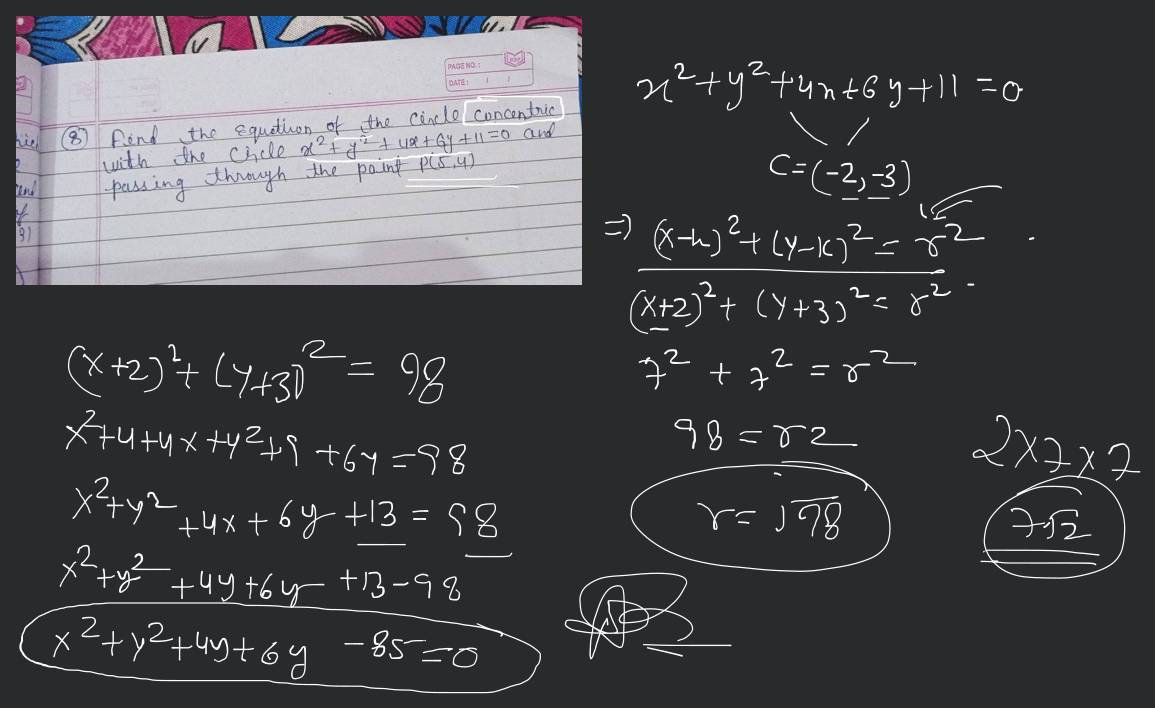 PAGE NO.:
DATE: / /
(8) Find the equation of the circle concentric
with the circle x² + y² + 4x + 6y + 11 = 0 and
passing through the point P(5,4)
x² + y² + 4x + 6y + 11 = 0
C = (-2, -3)
⇒ (x-h)² + (y-k)² = r²
(x+2)² + (y+3)² = r²
7² + 7² = r²
98 = r2
r = √98
2×7×7
7√2
(x+2)² + (y+3)² = 98
x² + 4 + 4x + y² + 9 + 6y = 98
x² + y² + 4x + 6y + 13 = 98
x² + y² + 4y + 6y + 13 - 98
x² + y² + 4y + 6y - 85 = 0